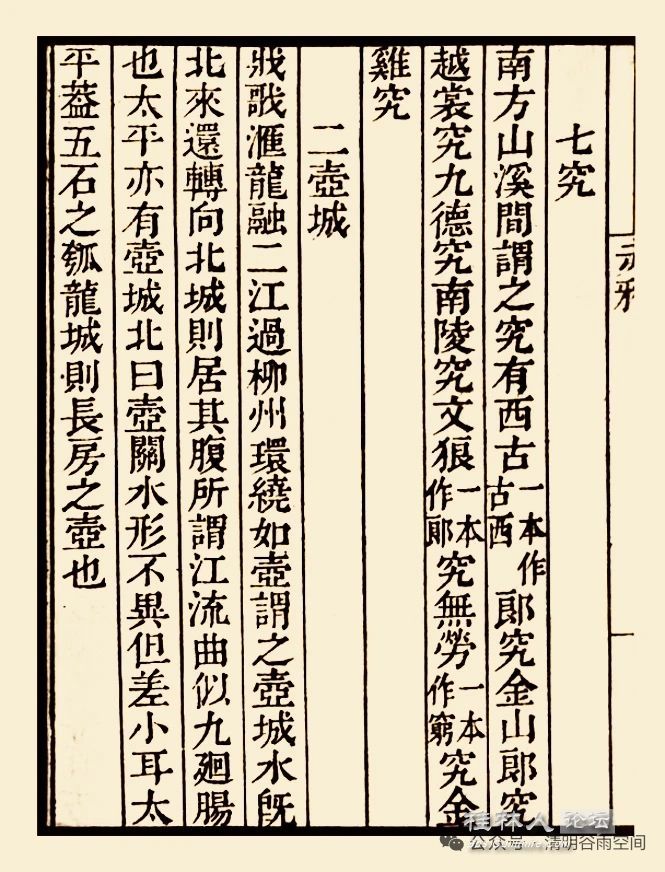 赤雅
一
七究
南方山溪間謂之究有西古一本作古西郎究金山郎究
越裳究九德究南陵究文狼一本作郎究無勞一本作窮究金
雞究
二壺城
牂牁滙龍融二江過柳州環繞如壺謂之壺城水旣
北來還轉向北城則居其腹所謂江流曲似九迴腸
也太平亦有壺城北曰壺關水形不異但差小耳太
平葢五石之瓠龍城則長房之壺也
桂林人论坛
公众号·清明谷雨空间